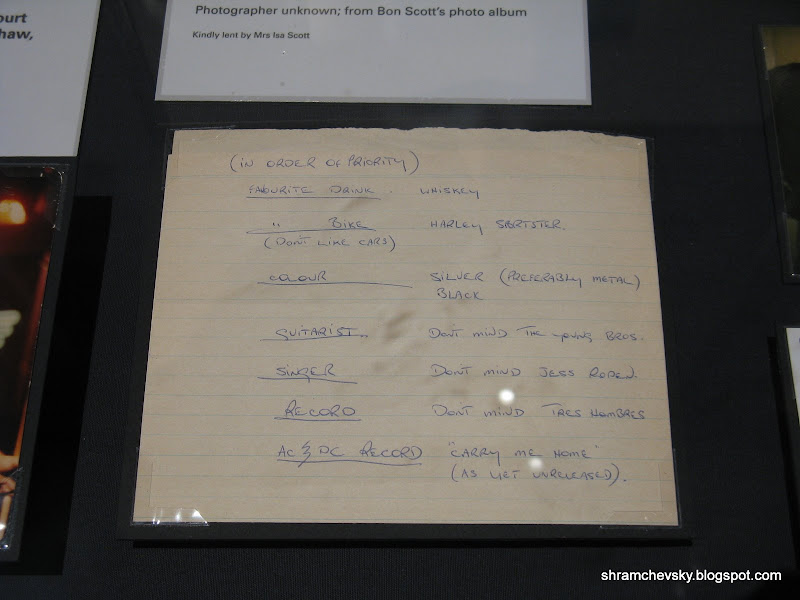 ourt
haw,
Photographer unknown; from Bon Scott's photo album
Kindly lent by Mrs Isa Scott
(IN ORDER OF PRIORITY)
FAVOURITE DRINK. WHISKEY
" BIKE HARLEY SPORTSTER.
(DONT LIKE CARS)
COLOUR SILVER (PREFERABLY METAL)
BLACK
GUITARIST.. DONT MIND THE YOUNG BROS.
SINGER DON'T MIND JESS RODEN.
RECORD DONT MIND TRES HOMBRES
AC DC RECORD "CARRY ME HOME"
(AS YET UNRELEASED).
shramchevsky.blogspot.com